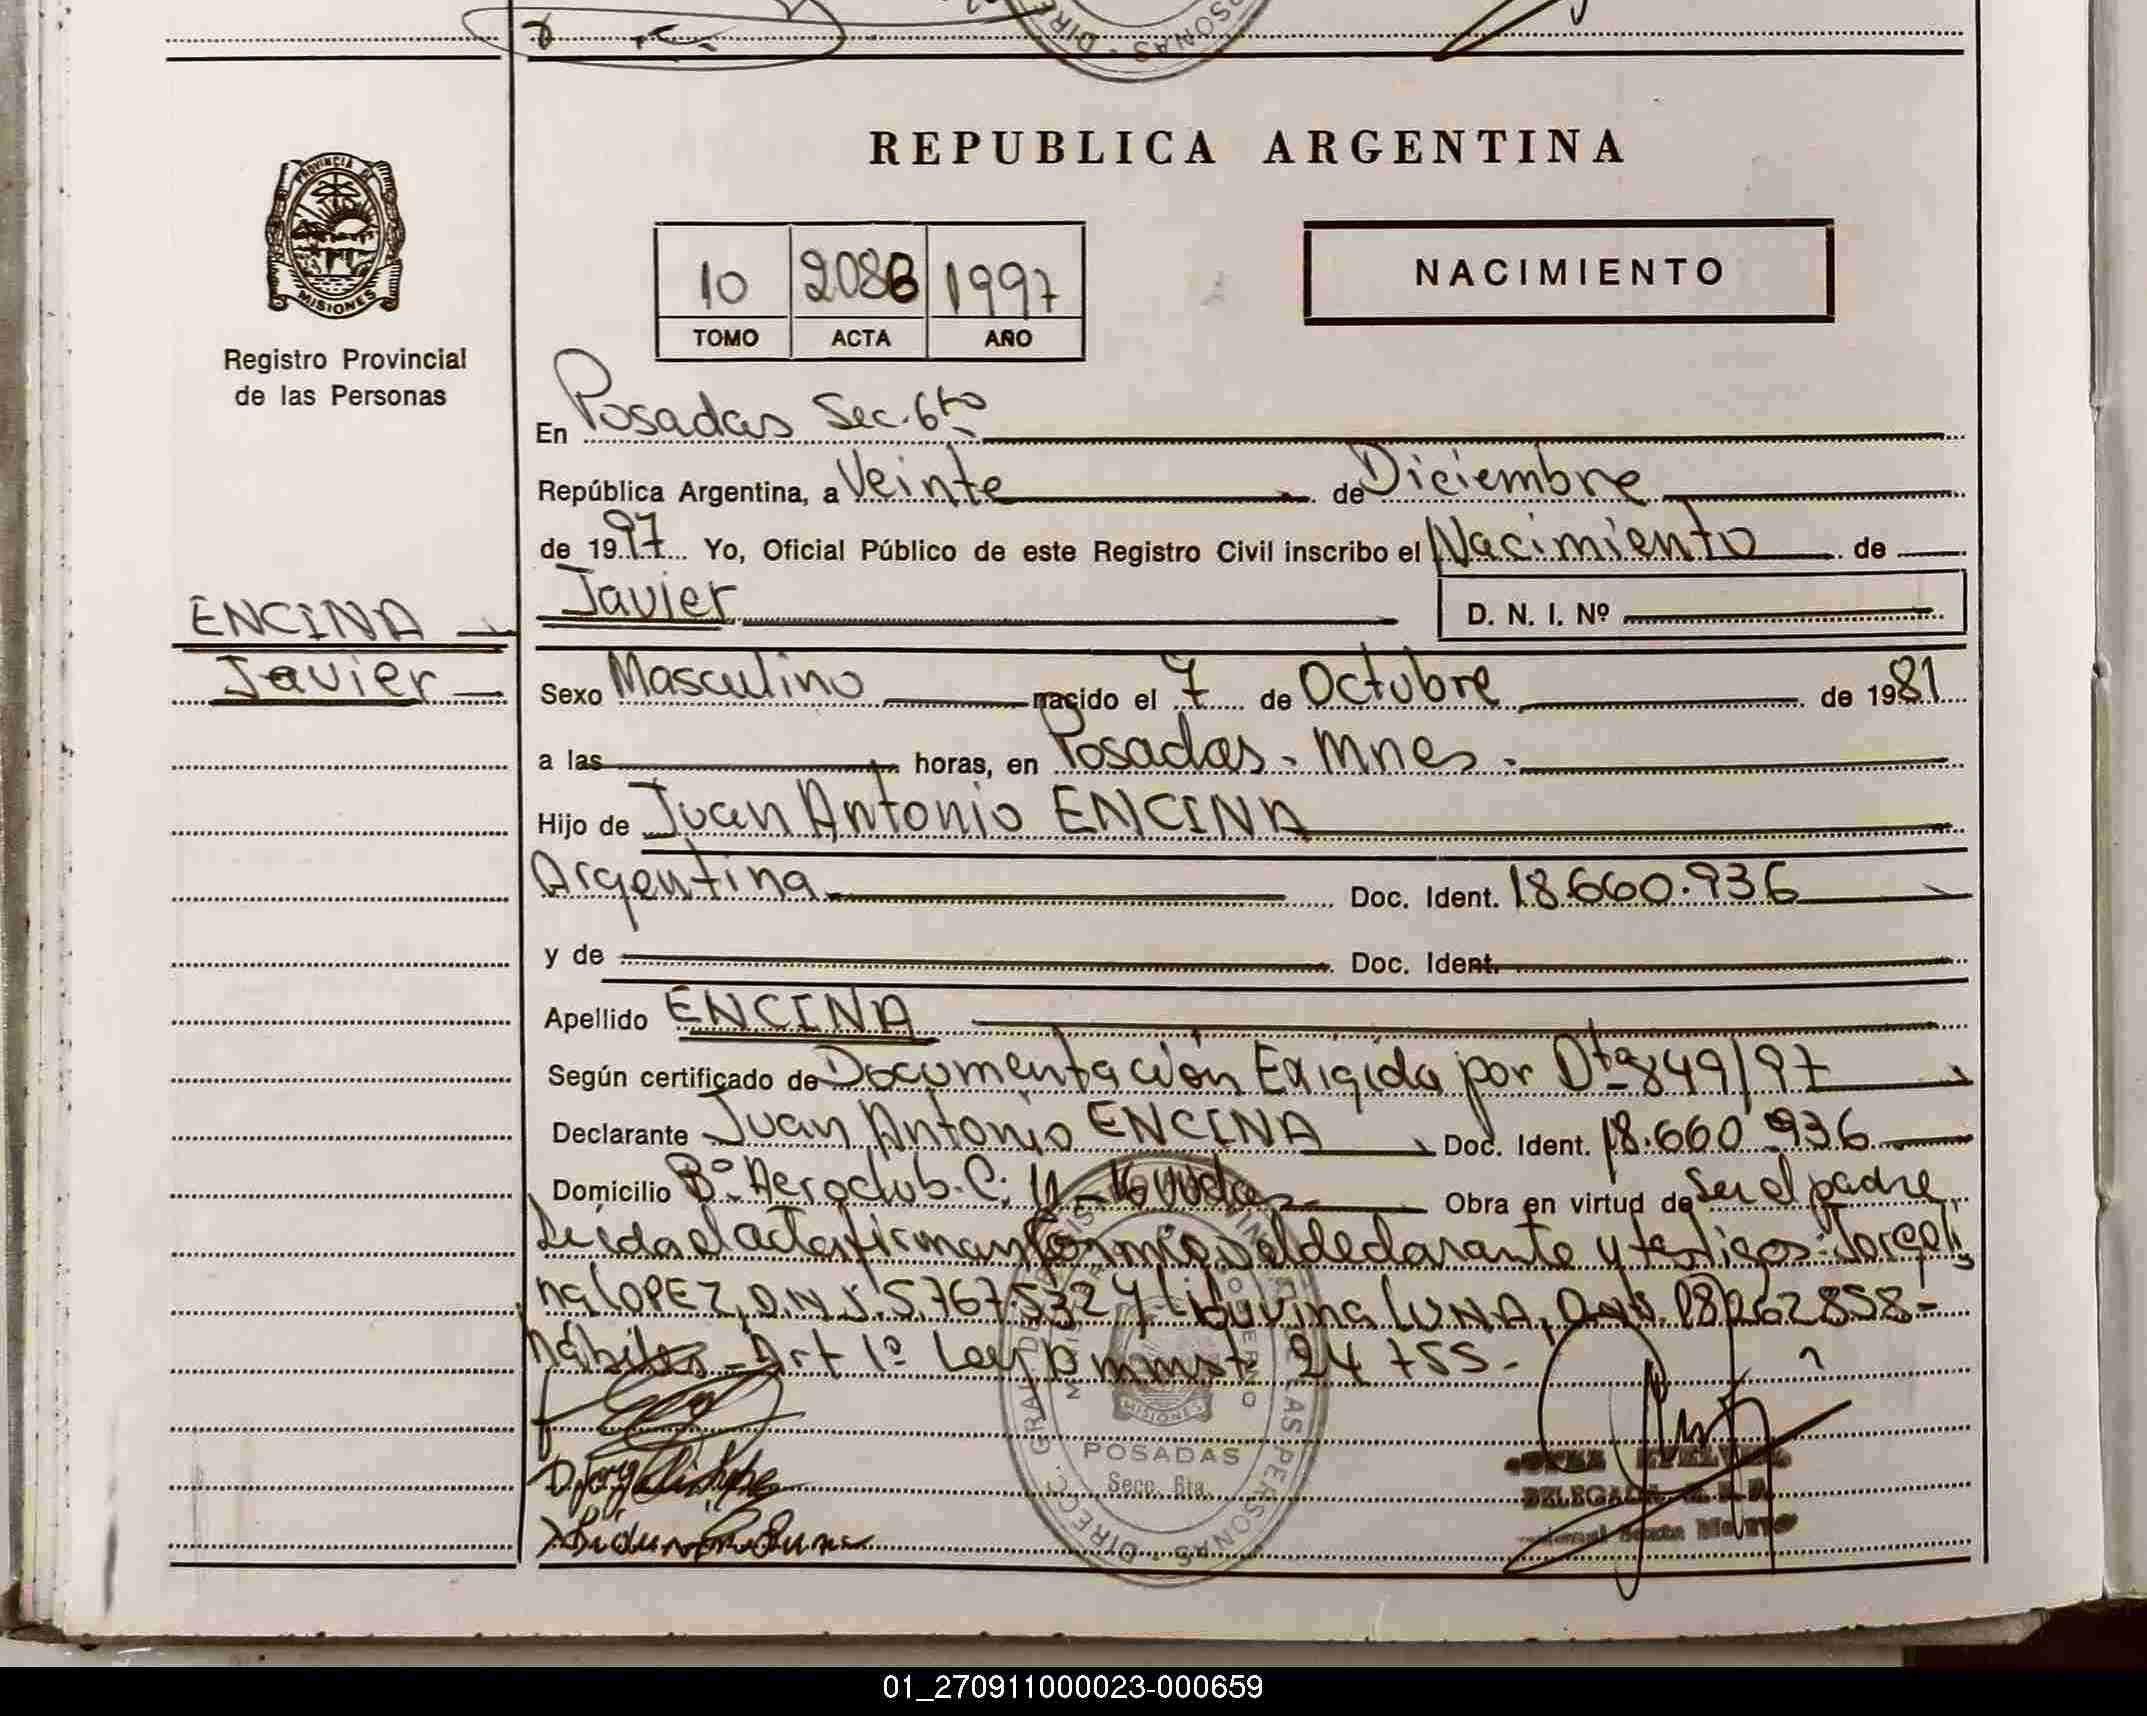 REPUBLICA ARGENTINA
PROVINCIA DE MISIONES
Registro Provincial
de las Personas
10 2086 1997
TOMO ACTA AÑO
NACIMIENTO
En Posadas Sec. 6ta
República Argentina, a Veinte de Diciembre
de 1997 Yo, Oficial Público de este Registro Civil inscribo el Nacimiento de
Javier D. N. I. Nº
ENCINA
Javier
Sexo Masculino nacido el 7 de Octubre de 1981
a las horas, en Posadas - Mnes -
Hijo de Juan Antonio ENCINA
Argentina Doc. Ident. 18.660.936
y de Doc. Ident.
Apellido ENCINA
Según certificado de Documentación Exigida por Dto 849/97
Declarante Juan Antonio ENCINA Doc. Ident. 18.660.936
Domicilio Bº Aeroclub. C. Obra en virtud de ser el padre
Leída el acta firman conmigo el declarante y testigos: Jorgeli
na LOPEZ, D.N.I. 5.767.532 y Liduvina LUNA, D.N.I. 18.262.858 -
hábiles - Art 1º Ley 24 755 -
POSADAS
Secc. 6ta.
DIREC. GRAL. DE LAS PERSONAS
MISIONES
01_270911000023-000659